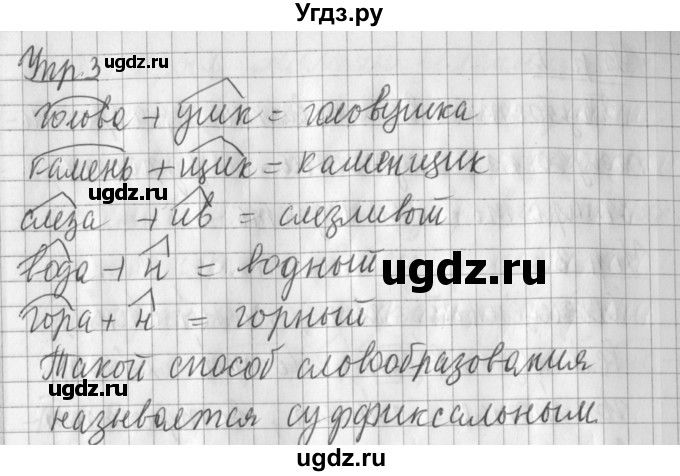 Угдз.ру
Упр.3 ugdz.ru
голова + ушк = головушка
камень + щик = каменщик
ugdz.ru
слеза + ив = слезливый
вода + н = водный
ugdz.ru
гора + н = горный
Такой способ словообразования
ugdz.ru
называется суффиксальным
Угдз.ру